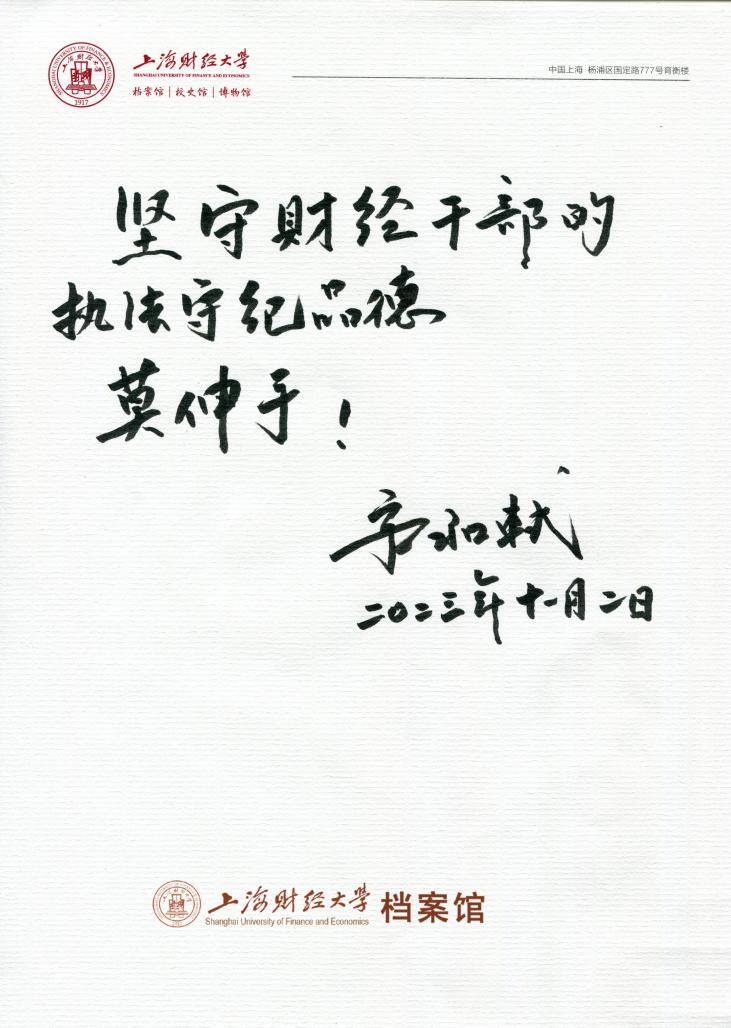 SHANGHAI UNIVERSITY OF FINANCE & ECONOMICS
上海财经大学
1917
上海财经大学
SHANGHAI UNIVERSITY OF FINANCE AND ECONOMICS
档案馆|校史馆|博物馆
中国上海 杨浦区国定路777号育衡楼
坚守财经干部的
执法守纪品德
莫伸手!
二〇二三年十一月二日
上海财经大学 档案馆
Shanghai University of Finance and Economics